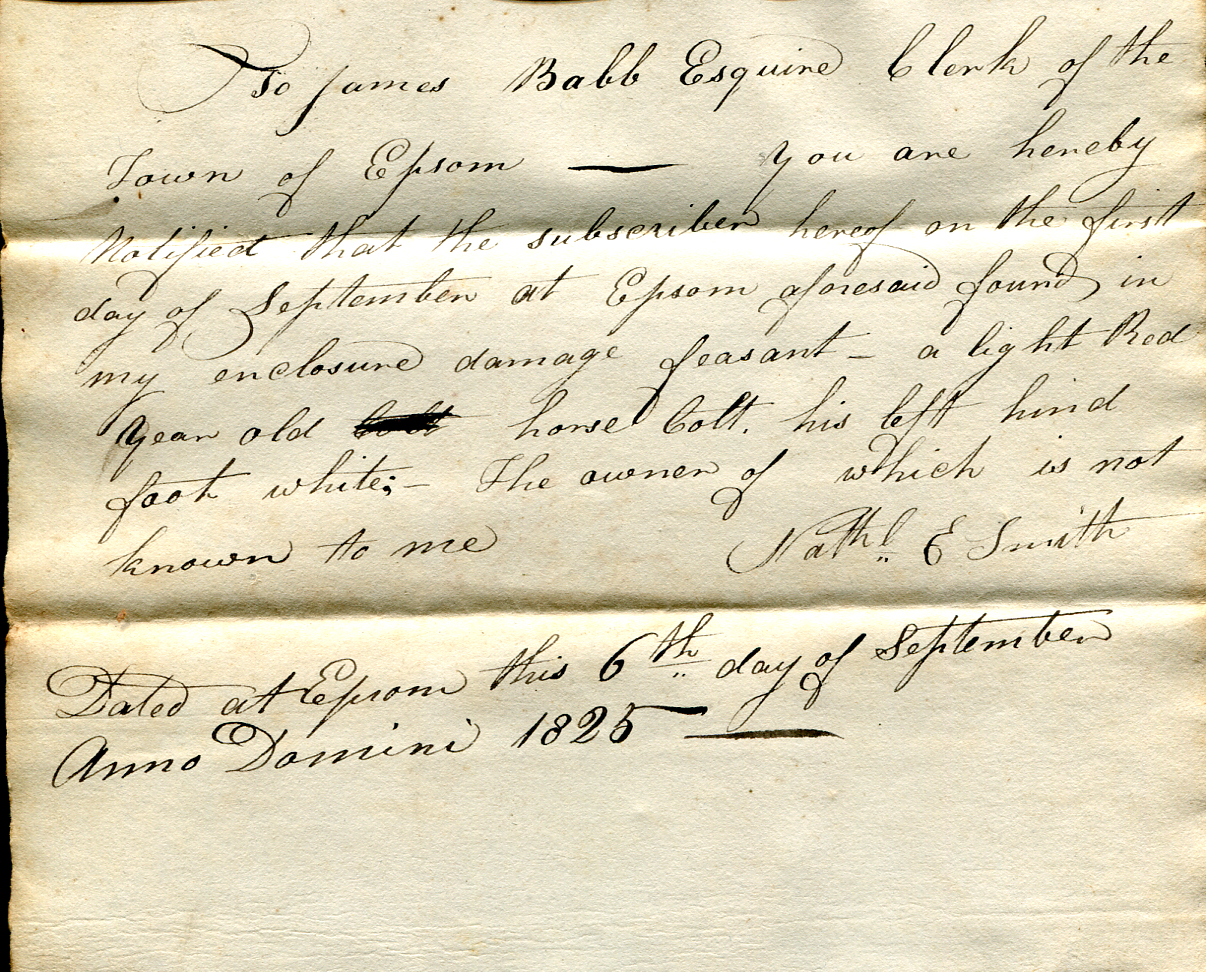 To James Babb Esquire Clerk of the
Town of Epsom — You are hereby
Notified that the subscriber hereof on the first
day of September at Epsom aforesaid found in
my enclosure damage feasant – a light Red
Year old horse Colt. his left hind
foot white;– The owner of which is not
known to me Nathl. E Smith
Dated at Epsom this 6th day of September
Anno Domini 1825 —